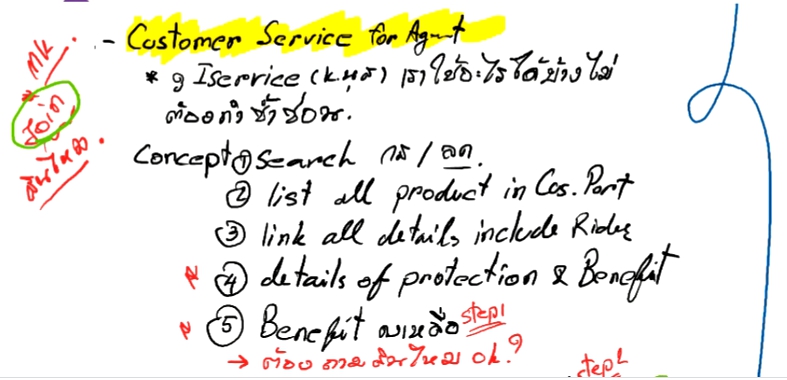 - Customer Service for Agent
* ดู Iservice (k.นุส) เราใช้อะไรได้บ้างไม่
ต้องทำซ้ำซ้อน.
MK
Join
Concept ① Search กธ / ลค.
② list all product in Cus. Port
③ link all details include Rider
④ details of protection & Benefit
⑤ Benefit คงเหลือ step1
→ ต้องถาม สินไหม ok?